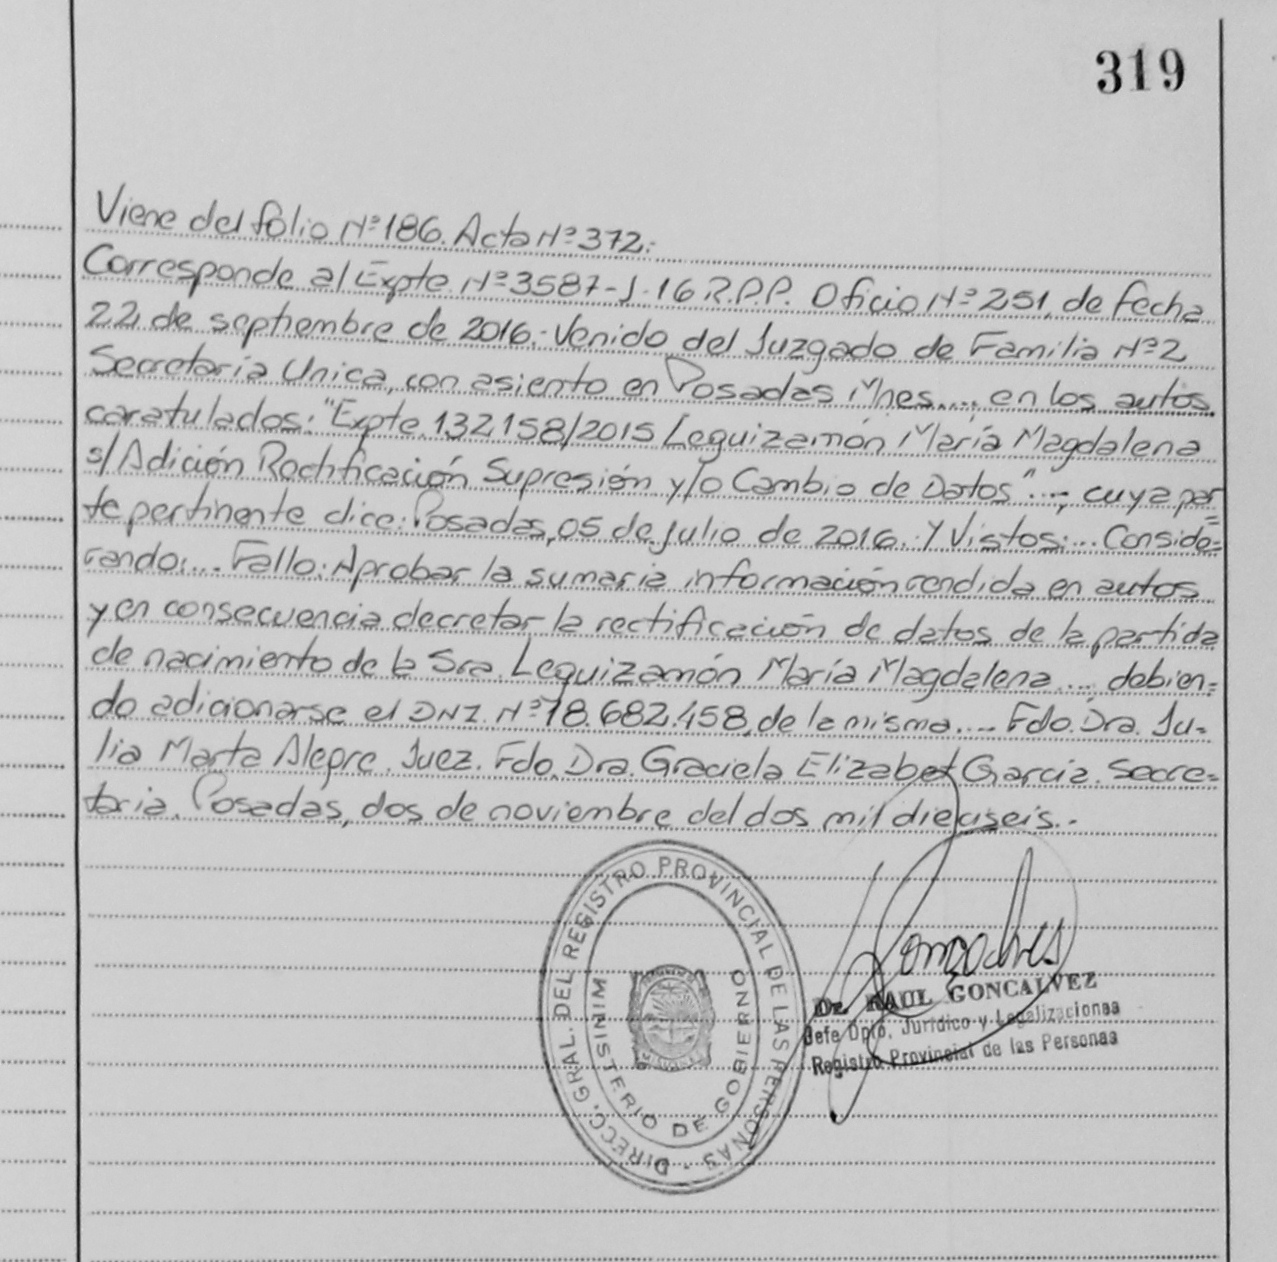 319
Viene del folio Nº 186. Acta Nº 372.
Corresponde al Expte. Nº 3587-J-16 R.P.P. Oficio Nº 251, de fecha
22, de septiembre de 2016. Venido del Juzgado de Familia Nº 2
Secretaría Unica, con asiento en Posadas Mnes.... en los autos
caratulados: "Expte. 132158/2015 Leguizamón María Magdalena
s/Adición Rectificación Supresión y/o Cambio de Datos"..., cuya par
te pertinente dice: Posadas, 05 de Julio de 2016. Y Vistos:... Conside=
rando:... Fallo: Aprobar la sumaria información rendida en autos
y en consecuencia decretar la rectificación de datos de la partida
de nacimiento de la Sra. Leguizamón María Magdalena.... debien=
do adicionarse el DNI. Nº 18.682.458, de la misma.... Fdo. Dra. Ju-
lia Marta Alegre. Juez. Fdo. Dra. Graciela Elizabet Garcia. Secre=
taria. Posadas, dos de noviembre del dos mil dieciseis.-
DIRECC. GRAL. DEL REGISTRO PROVINCIAL DE LAS PERSONAS -
MINISTERIO DE GOBIERNO
Dr. RAUL GONCALVEZ
Jefe Dpto. Jurídico y Legalizaciones
Registro Provincial de las Personas